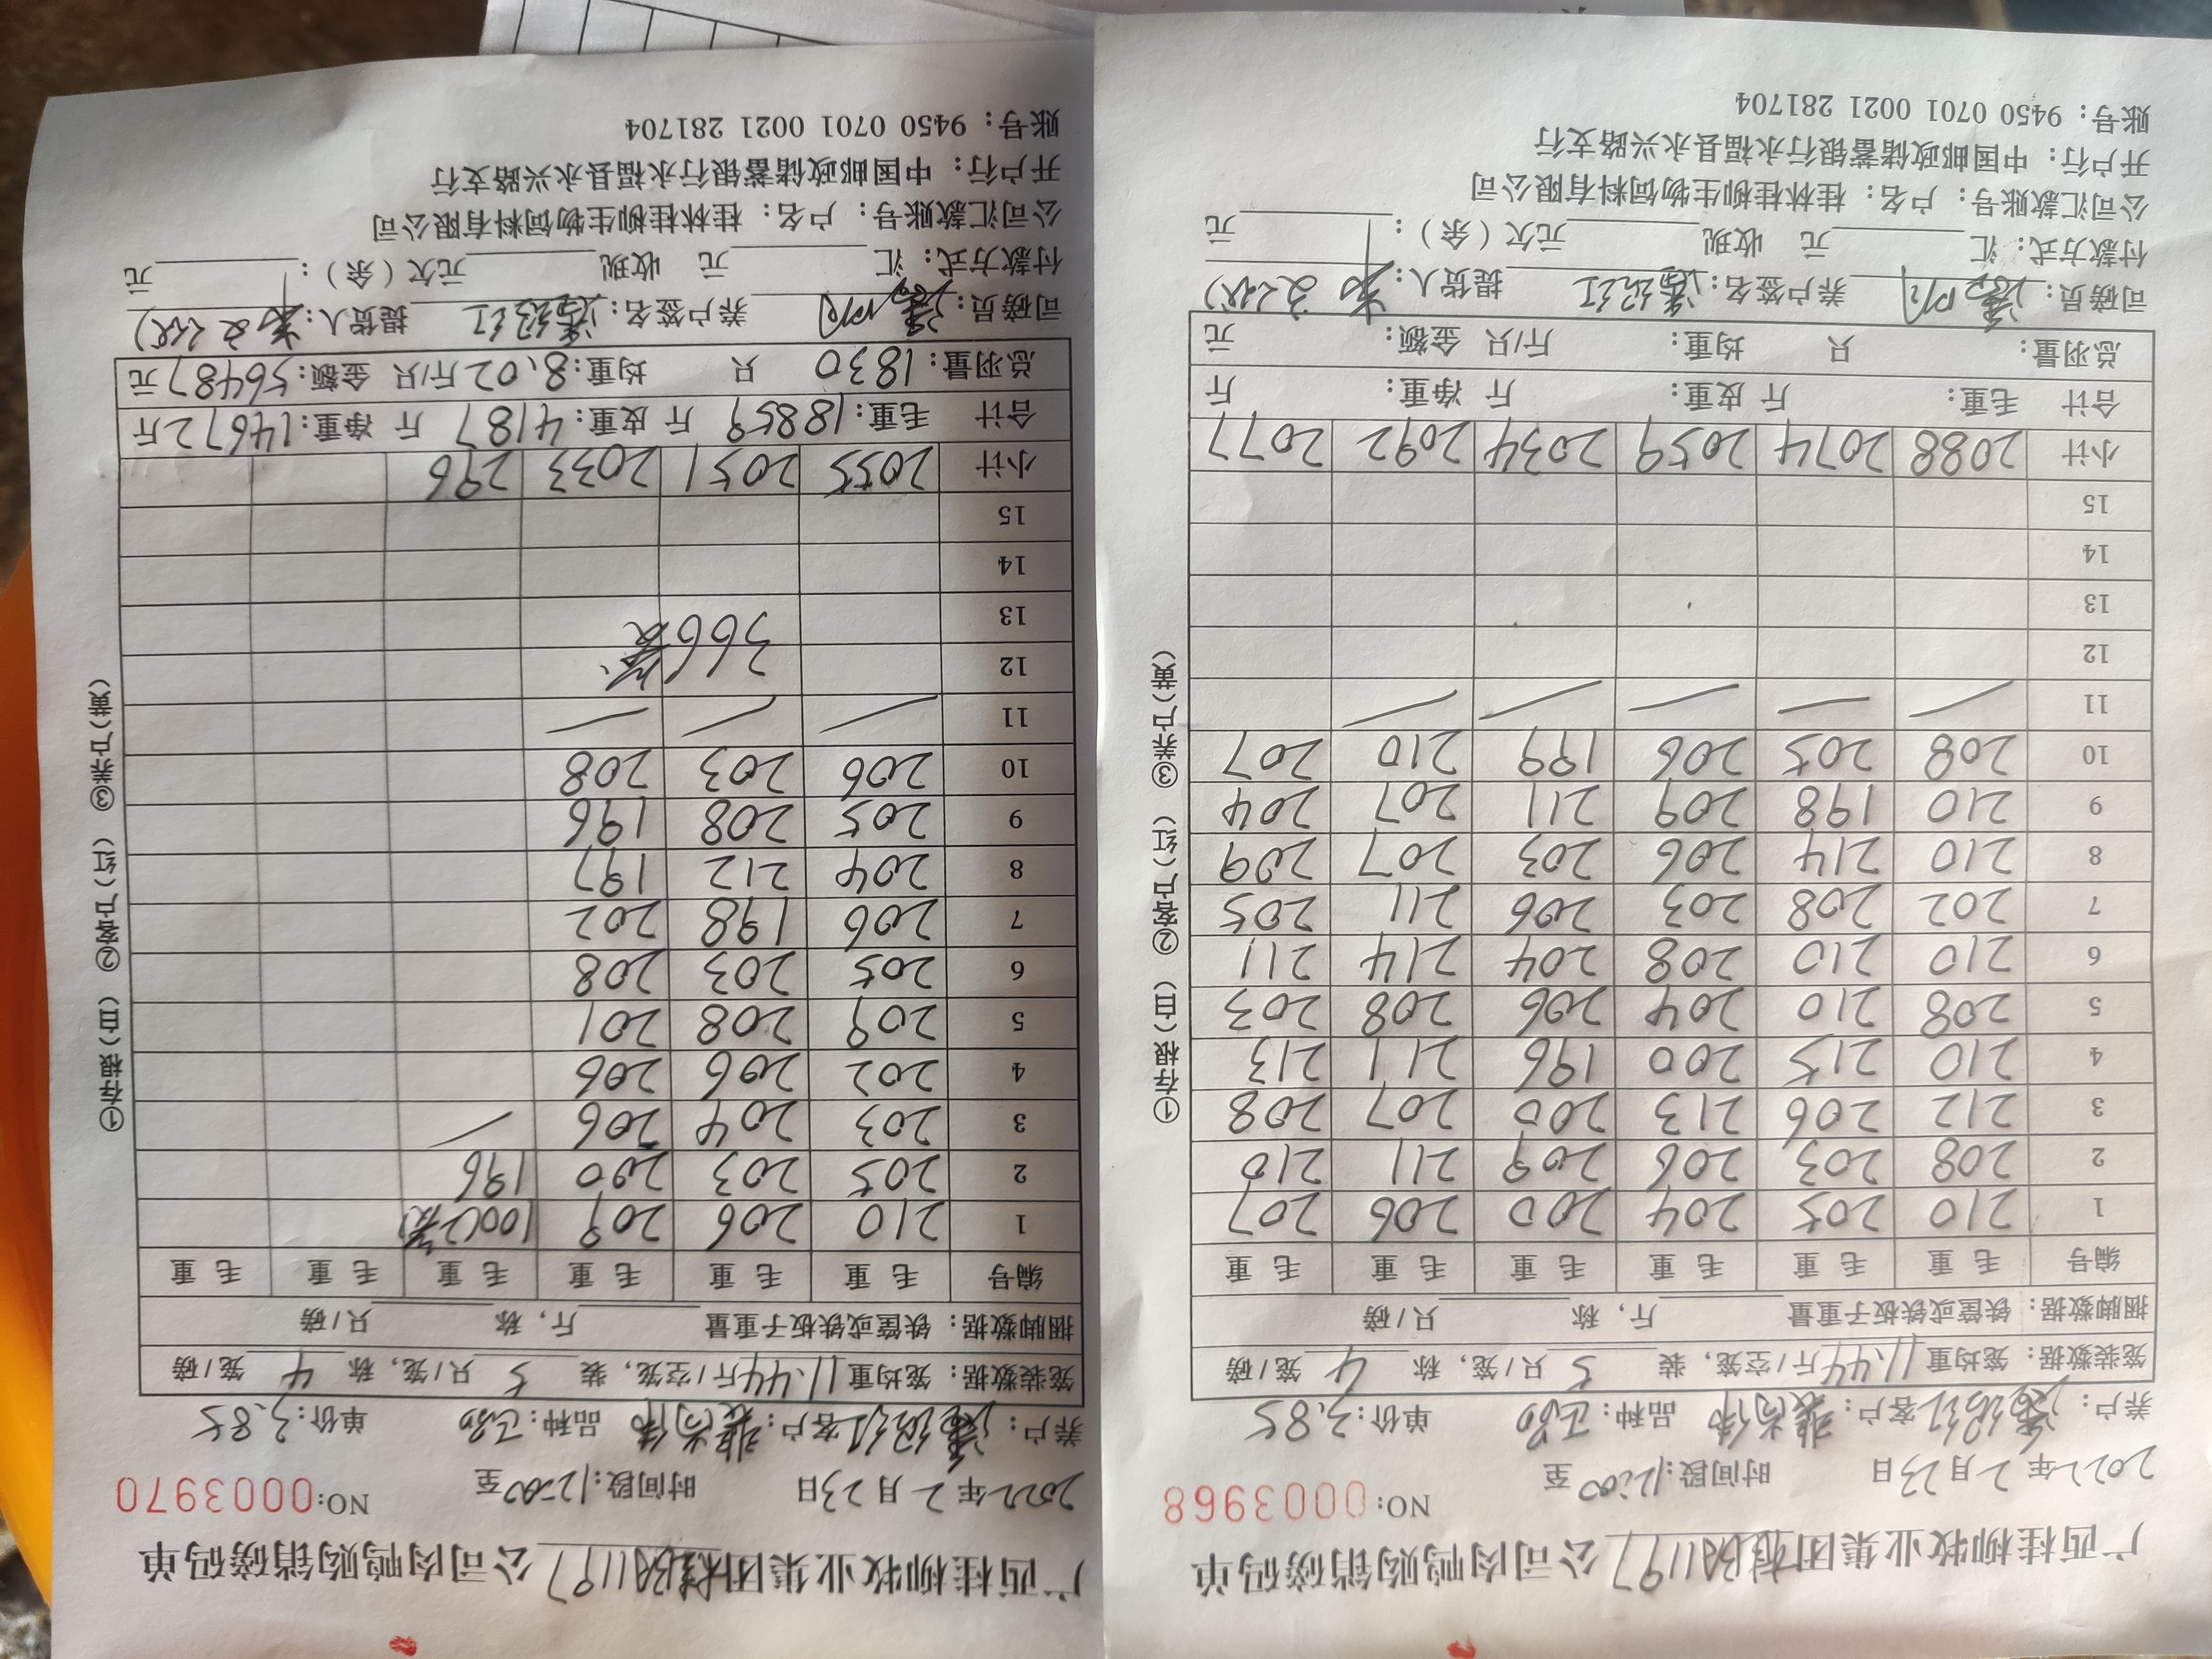 广西桂柳牧业集团桂BA1197公司肉鸭购销磅码单
NO:0003968
2022年2月23日 时间段:12:00至
养户: 客户: 品种: 单价:3.85
笼装数据: 笼均重11.44斤/空笼, 装5只/笼, 称4笼/磅
捆脚数据: 铁筐或铁板子重量 斤, 称 只/磅
编号 毛重 毛重 毛重 毛重 毛重 毛重
1 210 205 204 200 206 207
2 208 203 206 209 211 210
3 212 206 213 200 207 208
4 210 215 200 196 211 213
5 208 210 204 206 208 203
6 210 210 208 204 214 211
7 202 208 203 206 211 205
8 210 214 206 203 207 209
9 210 198 209 211 207 204
10 208 205 206 199 210 207
11
12
13
14
15
小计 2088 2074 2059 2034 2092 2077
合计 毛重: 斤 皮重: 斤 净重: 斤
总羽量: 只 均重: 斤/只 金额: 元
司磅员: 养户签名: 提货人:
付款方式: 汇 元 收现 元欠(余): 元
公司汇款账号: 户名: 桂林桂柳生物饲料有限公司
开户行: 中国邮政储蓄银行永福县永兴路支行
账号: 9450 0701 0021 281704
①存根(白) ②客户(红) ③养户(黄)
广西桂柳牧业集团桂BA1197公司肉鸭购销磅码单
NO:0003970
2022年2月23日 时间段:12:00至
养户: 客户: 品种: 单价:3.85
笼装数据: 笼均重11.44斤/空笼, 装5只/笼, 称4笼/磅
捆脚数据: 铁筐或铁板子重量 斤, 称 只/磅
编号 毛重 毛重 毛重 毛重 毛重 毛重
1 210 206 209 100(2笼)
2 205 203 200 196
3 203 204 206
4 202 206 206
5 209 208 201
6 205 203 208
7 206 198 202
8 204 212 197
9 205 208 196
10 206 203 208
11
12
366笼
13
14
15
小计 2055 2051 2033 296
合计 毛重:18859斤 皮重:4187斤 净重:14672斤
总羽量:1830只 均重:8.02斤/只 金额:56487元
司磅员: 养户签名: 提货人:
付款方式: 汇 元 收现 元欠(余): 元
公司汇款账号: 户名: 桂林桂柳生物饲料有限公司
开户行: 中国邮政储蓄银行永福县永兴路支行
账号: 9450 0701 0021 281704
①存根(白) ②客户(红) ③养户(黄)